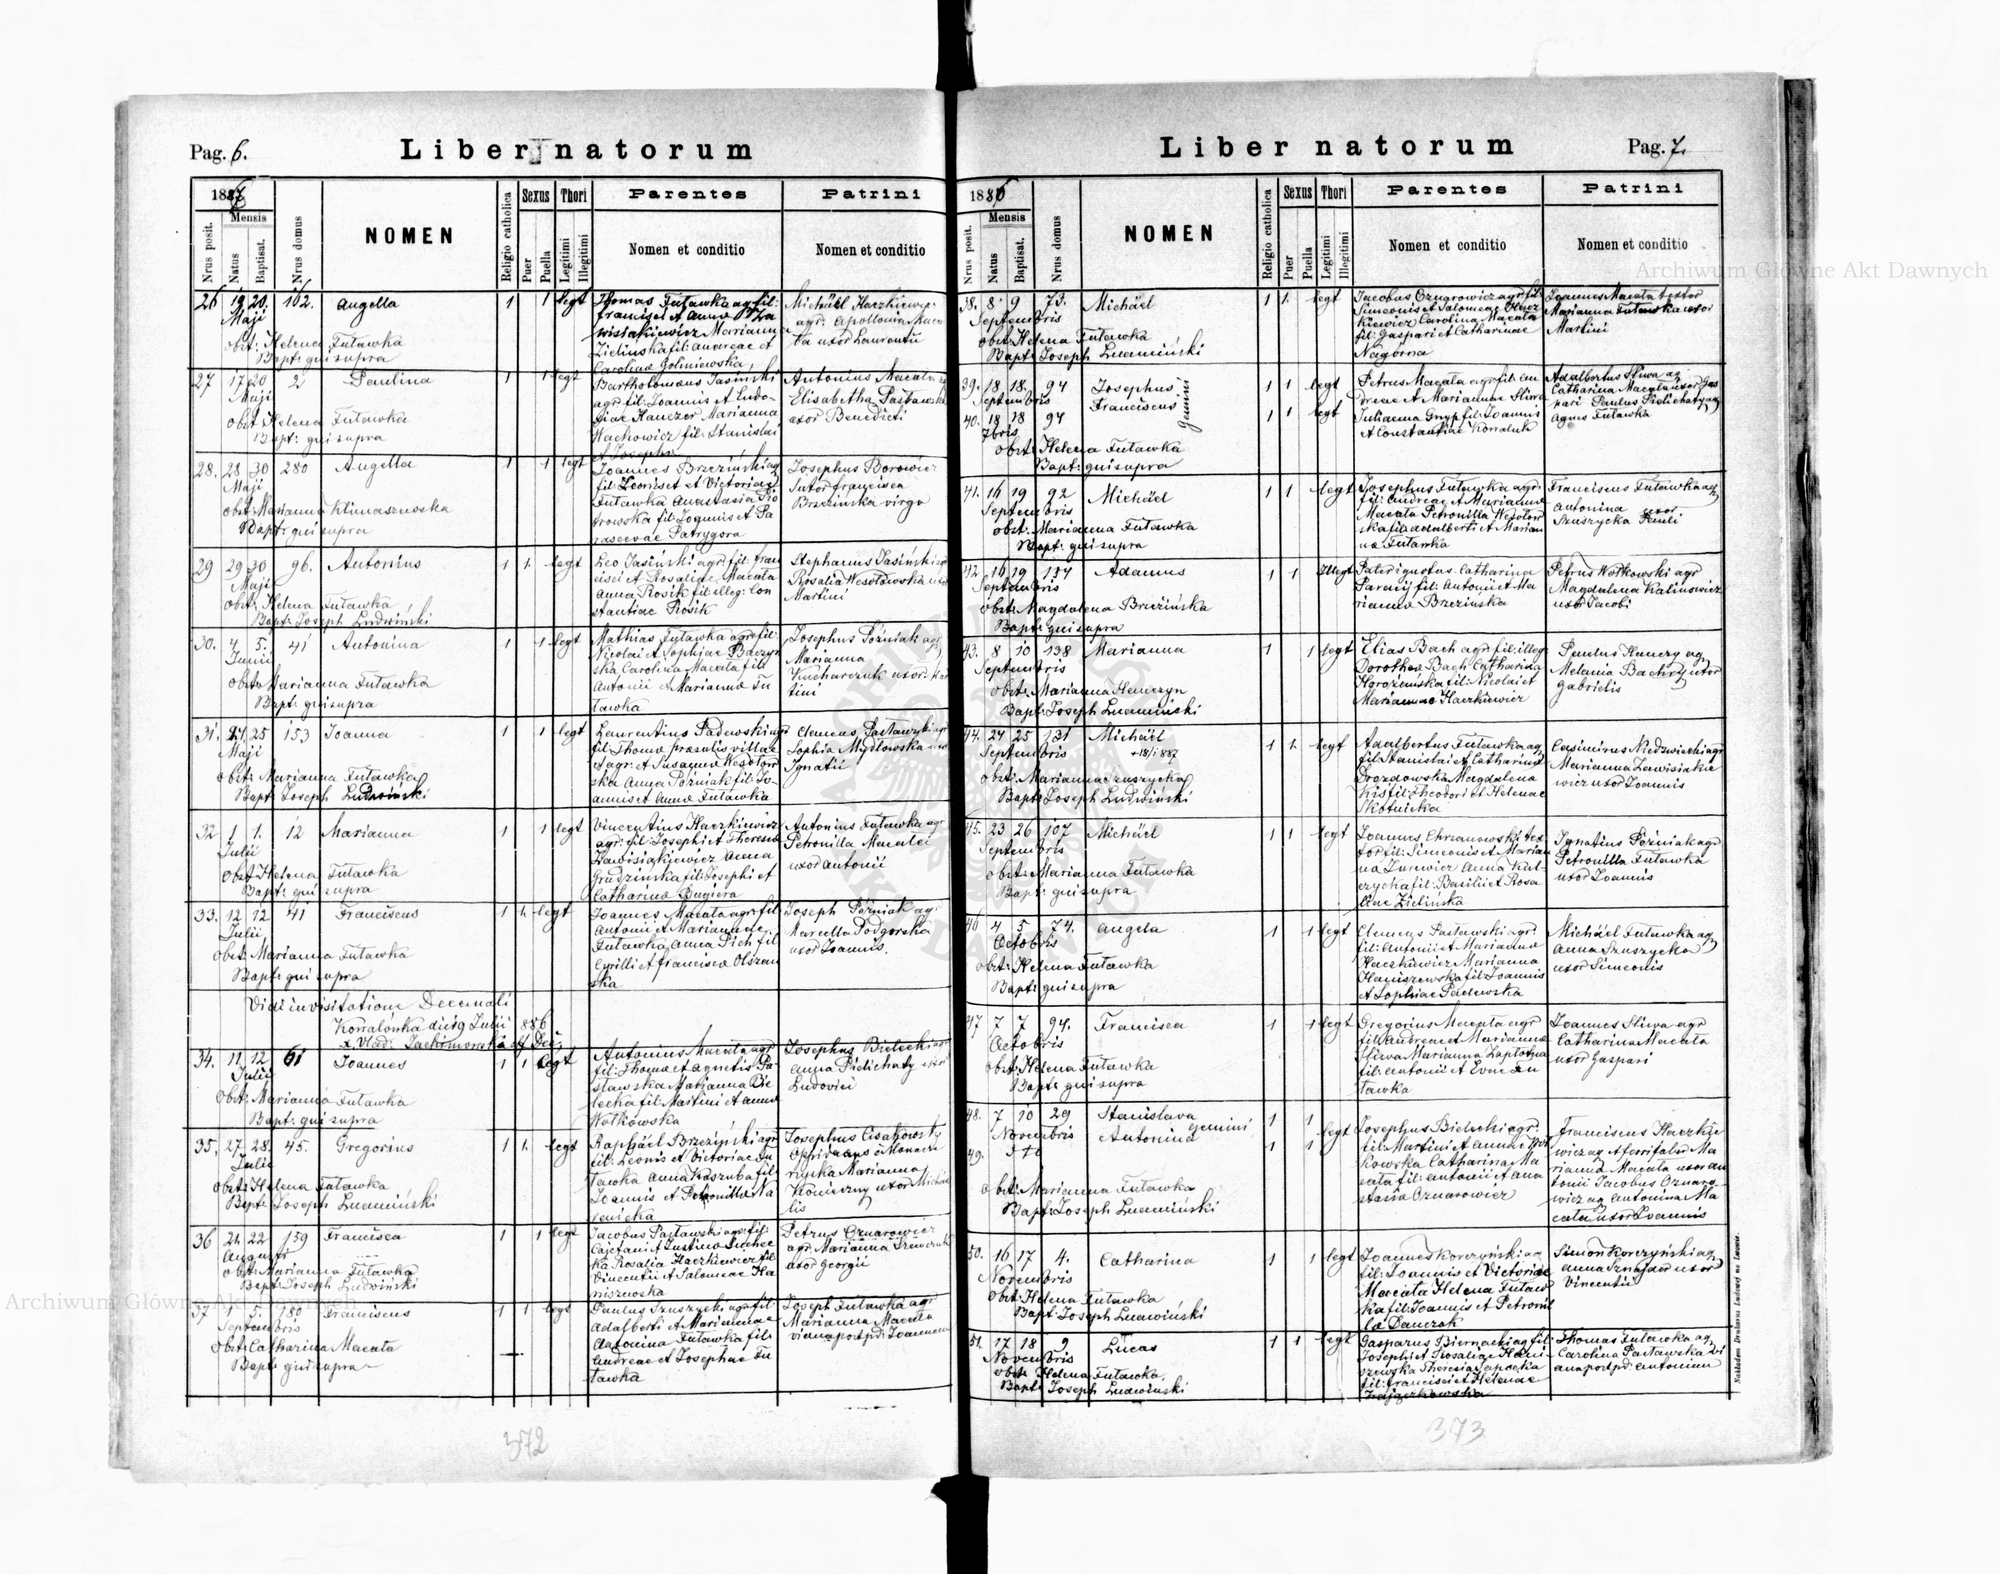 Pag. 6.
Liber natorum
1886
Nrus posit.
Mensis
Natus
Baptisat.
Nrus domus
NOMEN
Religio catholica
Sexus
Puer
Puella
Thori
Legitimi
Illegitimi
Parentes
Nomen et conditio
Patrini
Nomen et conditio
26 19 20. 102. Angella 1 1 legt
Maji
obst: Helena Futawka
Bapt: qui supra
Thomas Futawka agr fil:
Francisci et Annae
Marianna
Zielinska fil: Andreae et
Carolinae Goliniewska
27 17 20 2 Paulina 1 1 legt
Maji
obst: Helena Futawka
Bapt: qui supra
Bartholomaeus Jasinski
agr fil: Joannis et
Hanczer Marianna
Wachowicz fil: Stanislai
et Josephae
Antonius Macata
Elisabetha
uxor Benedicti
28. 28 30 280 Angella 1 1 legt
Maji
obst: Marianna Klimaszewska
Bapt: qui supra
Joannes Brzeziński ag
fil: Leonis et Victoriae
Futawka Anastasia Pio
trowska fil: Joannis et Pa
rascevae Patrygora
Josephus Borowicz
sutor Francisca
Brzezinska virgo
29 29 30 96. Antonius 1 1. legt
Maji
obst: Helena Futawka
Bapt: Joseph Ludwiński
Leo Jasiński agr. fil: Fran
cisci et Rosaliae Macata
Anna Rosik fil: illeg: Con
stantiae Rosik
Stephanus Jasiński
Rosalia Wesołowska uxor
Martini
30. 4 5. 41 Antonina 1 1 legt
Junii
obst: Marianna Futawka
Bapt: qui supra
Mathias Futawka agr fil:
Nicolai et Sophiae Baczyn
ska Carolina Macata fil
Antonii et Marianna Fu
tawka
Josephus Póżniak agr
Marianna
Kucharczuk uxor Mar
tini
31. 24 25 153 Joanna 1 1 legt
Maji
obst: Marianna Futawka
Bapt: Joseph Ludwiński
Laurentius Padewski ag
fil: Thomae praesulis villae
et agr: et Susanna Wesołow
ska Anna Póżniak fil: Jo
annis et Anna Futawka
Clemens Pastawski agr
Sophia Mysłowska uxor
Ignatii
32 1 1. 12 Marianna 1 1 legt
Julii
obst Helena Futawka
Bapt: qui supra
Vincentius Haczkiewicz
agr: fil: Josephi et Theresiae
Zawisiakiewicz Anna
Grudzińska fil: Josephi et
Catharina Bugiera
Antonius Futawka agr
Petronilla Macatei
uxor Antonii
33. 12 12 41 Franciscus 1 1. legt
Julii
obst: Marianna Futawka
Bapt: qui supra
Joannes Macata agr. fil:
Antonii et Mariannae
Futawka Anna Pich fil
Cyrilli et Francisca Olszan
ska
Joseph Póżniak agr.
Marcella Podgorska
uxor Joannis.
Vidi in visitatione Decanali
Korralówka die 19 Julii 886
34. 11 12 61 Joannes 1 1 legt
Julii
obst: Marianna Futawka
Bapt: qui supra
Antonius Macata agr
fil: Thomae et Agnetis Pa
stawska Marianna Bie
lecka fil: Martini et Anna
Wołkowska
Josephus Bielecki
Anna Pielichaty uxor
Ludovici
35. 27 28. 45. Gregorius 1 1. legt
Julii
obst: Helena Futawka
Bapt: Joseph Ludwiński
Raphäel Brzeziński agr
fil: Leonis et Victoriae Fu
tawka Anna Kaszuba fil
Joannis et Petronilla Na
renicka
Josephus
Marianna
Konieczny uxor Michae
lis
36 21 22 159 Francisca 1 1 legt
Augusti
obst: Marianna Futawka
Bapt: Joseph Ludwiński
Jacobus Pastawski agr. fil:
Cajetani et Justina
Rosalia Haczkiewicz fil
Vincentii et Salomeae Ha
niszewska
Petrus Oznarowicz
agr. Marianna Szewczuk
uxor Georgii
37 1 5. 180 Franciscus 1 1 legt
Septembris
obst: Catharina Macata
Bapt: qui supra
Paulus Szuszycki agr. fil:
Adalberti et Mariannae
Antonina Futawka fil:
Andreae et Josephae Fu
tawka
Joseph Futawka agr
Marianna Macata
372
Liber natorum
Pag. 7.
1886
Nrus posit.
Mensis
Natus
Baptisat.
Nrus domus
NOMEN
Religio catholica
Sexus
Puer
Puella
Thori
Legitimi
Illegitimi
Parentes
Nomen et conditio
Patrini
Nomen et conditio
38. 8 9 73. Michäel 1 1. legt
Septembris
obst: Helena Futawka
Bapt: Joseph Ludwiński
Jacobus Oznarowicz agr. fil:
Simeonis et Salomeae Hacz
kiewicz Carolina Macata
fil: Gaspari et Catharinae
Nagórna
Joannes Macata textor
Marianna Futawska uxor
Martini
39. 18 18. 94 Josephus 1 1 legt
Septembris
Franciscus gemini
40. 18 18 94 1 1 legt
7bris
obst: Helena Futawka
Bapt: qui supra
Petrus Macata agr. fil: An
dreae et Marianna Sliwa
Julianna Gnyp fil: Joannis
et Constantiae Korraluk
Adalbertus Sliwa ag
Catharina Macata uxor Gas
pari Paulus Pielichaty ag
Agnes Futawka
41. 16 19 92 Michäel 1 1 legt
Septembris
obst: Marianna Futawka
Bapt: qui supra
Josephus Futawka agr.
fil: Andreae et Marianna
Macata Petronilla Wesołow
ska fil: Adalberti et Marian
na Futawka
Franciscus Futawka ag
Antonina uxor
Szuszycka Pauli
42 16 19 134 Adamus 1 1 Illegt
Septembris
obst: Magdalena Brzezińska
Bapt: qui supra
Pater ignotus Catharina
Paracij fil: Antonii et Ma
rianna Brzezinska
Petrus Wołkowski agr
Magdalena Kalinowicz
uxor Jacobi
43. 8 10 138 Marianna 1 1 legt
Septembris
obst: Marianna Hanczyn
Bapt: Joseph Ludwiński
Elias Bach agr. fil: illeg
Dorothea Bach Catharina
Horożeniska fil: Nicolai et
Mariannae Haczkiewicz
Paulus Hanczy ag
Melania Bachry uxor
Gabrielis
44. 24 25 131 Michäel 1 1. legt
Septembris +18/1 887
obst: Marianna Szuszycka
Bapt: Joseph Ludwiński
Adalbertus Futawka ag
fil: Stanislai et Catharina
Drozdowska Magdalena
Kis fil: Theodori et Helenae
Skotnicka
Casimirus Niedzwiecki agr
Marianna Zawisiakie
wicz uxor Joannis
45. 23 26 107 Michäel 1 1 legt
Septembris
obst: Marianna Futawka
Bapt: qui supra
Joannes Chrzanowski tex
tor fil: Simeonis et Marian
na Jurewicz Anna Kul
czycka fil: Basilii et Rosa
liae Zielińska
Ignatius Póżniak agr
Petronilla Futawka
uxor Joannis
46 4 5 74. Angela 1 1 legt
Octobris
obst: Helena Futawka
Bapt: qui supra
Clemens Pastawski agr.
fil: Antonii et Marianna
Haczkiewicz Marianna
Haniszewska fil: Joannis
et Sophiae Padewska
Michäel Futawka ag
Anna Szuszycka
uxor Simeonis
47 7 7 94. Francisca 1 1 legt
Octobris
obst: Helena Futawka
Bapt: qui supra
Gregorius Macata agr
fil: Andreae et Marianna
Sliwa Marianna Zapłotna
fil: Antonii et Evae Fu
tawka
Joannes Sliwa agr
Catharina Macata
uxor Gaspari
48. 7 10 29 Stanislava 1 1
Novembris Antonina gemini legt
49. 1 1
obst: Marianna Futawka
Bapt: Joseph Ludwiński
Josephus Bielecki agr.
fil: Martini et Anna Woł
kowska Catharina Ma
cata fil: Antonii et Ana
stasia Oznarowicz
Franciscus Haczkie
wicz ag
rianna Macata uxor An
tonii Jacobus Oznaro
wicz ag Antonina Ma
cata uxor Joannis
50. 16 17 4. Catharina 1 1 legt
Novembris
obst: Helena Futawka
Bapt: Joseph Ludwiński
Joannes Korczyński ag
fil: Joannis et Victoriae
Macata Helena Futaw
ka fil: Joannis et Petronil
la Danczak
Simon Korczyński ag
Anna Sznajder uxor
Vincentii
51. 17 18 9 Lucas 1 1 legt
Novembris
obst: Helena Futawka
Bapt: Joseph Ludwiński
Gasparus Biernacki ag fil:
Josephi et Rosaliae Hani
szewska Theresia Sapacka
fil: Francisci et Helenae
Zajączkowska
Thomas Futawka ag
Carolina Pastawska
Nakładem Drukarni Ludowej we Lwowie.
373
Archiwum Główne Akt Dawnych
Archiwum Główne Akt Dawnych